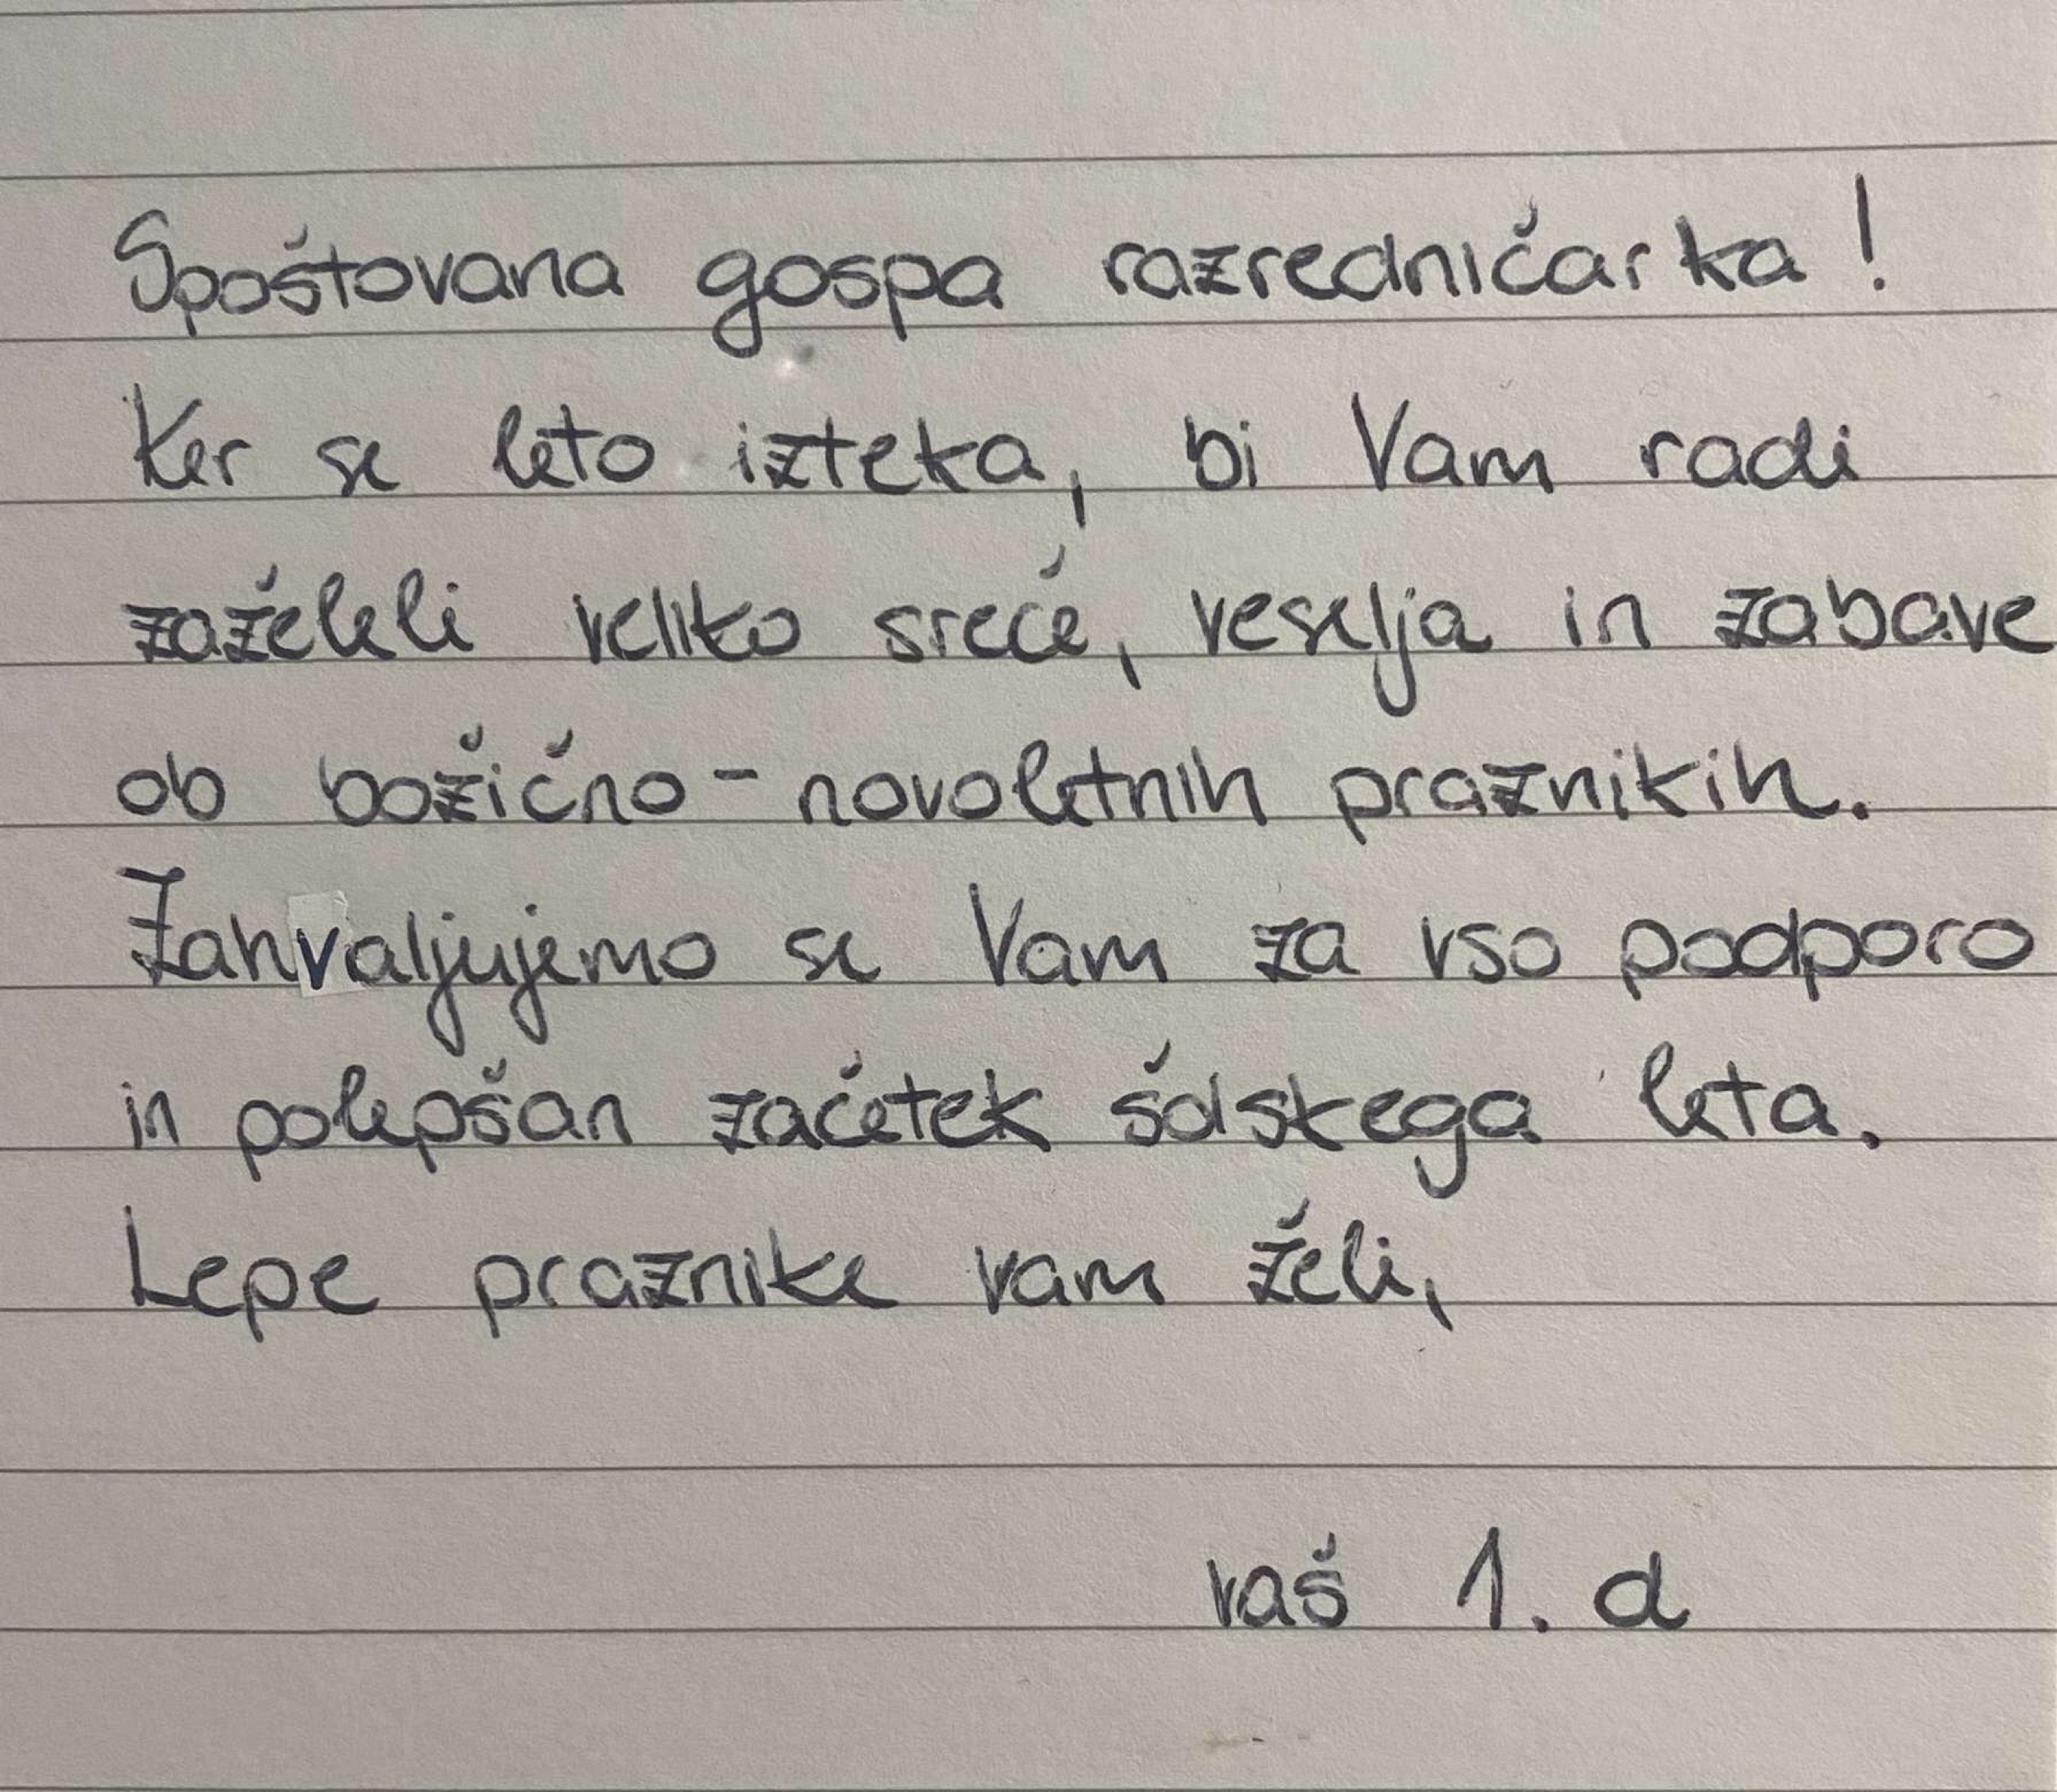 Spoštovana gospa razredničarka!
Ker se leto izteka, bi Vam radi
zaželeli veliko sreče, veselja in zabave
ob božično-novoletnih praznikih.
Zahvaljujemo se Vam za vso podporo
in polepšan začetek šolskega leta.
Lepe praznike vam želi,
vaš 1. d